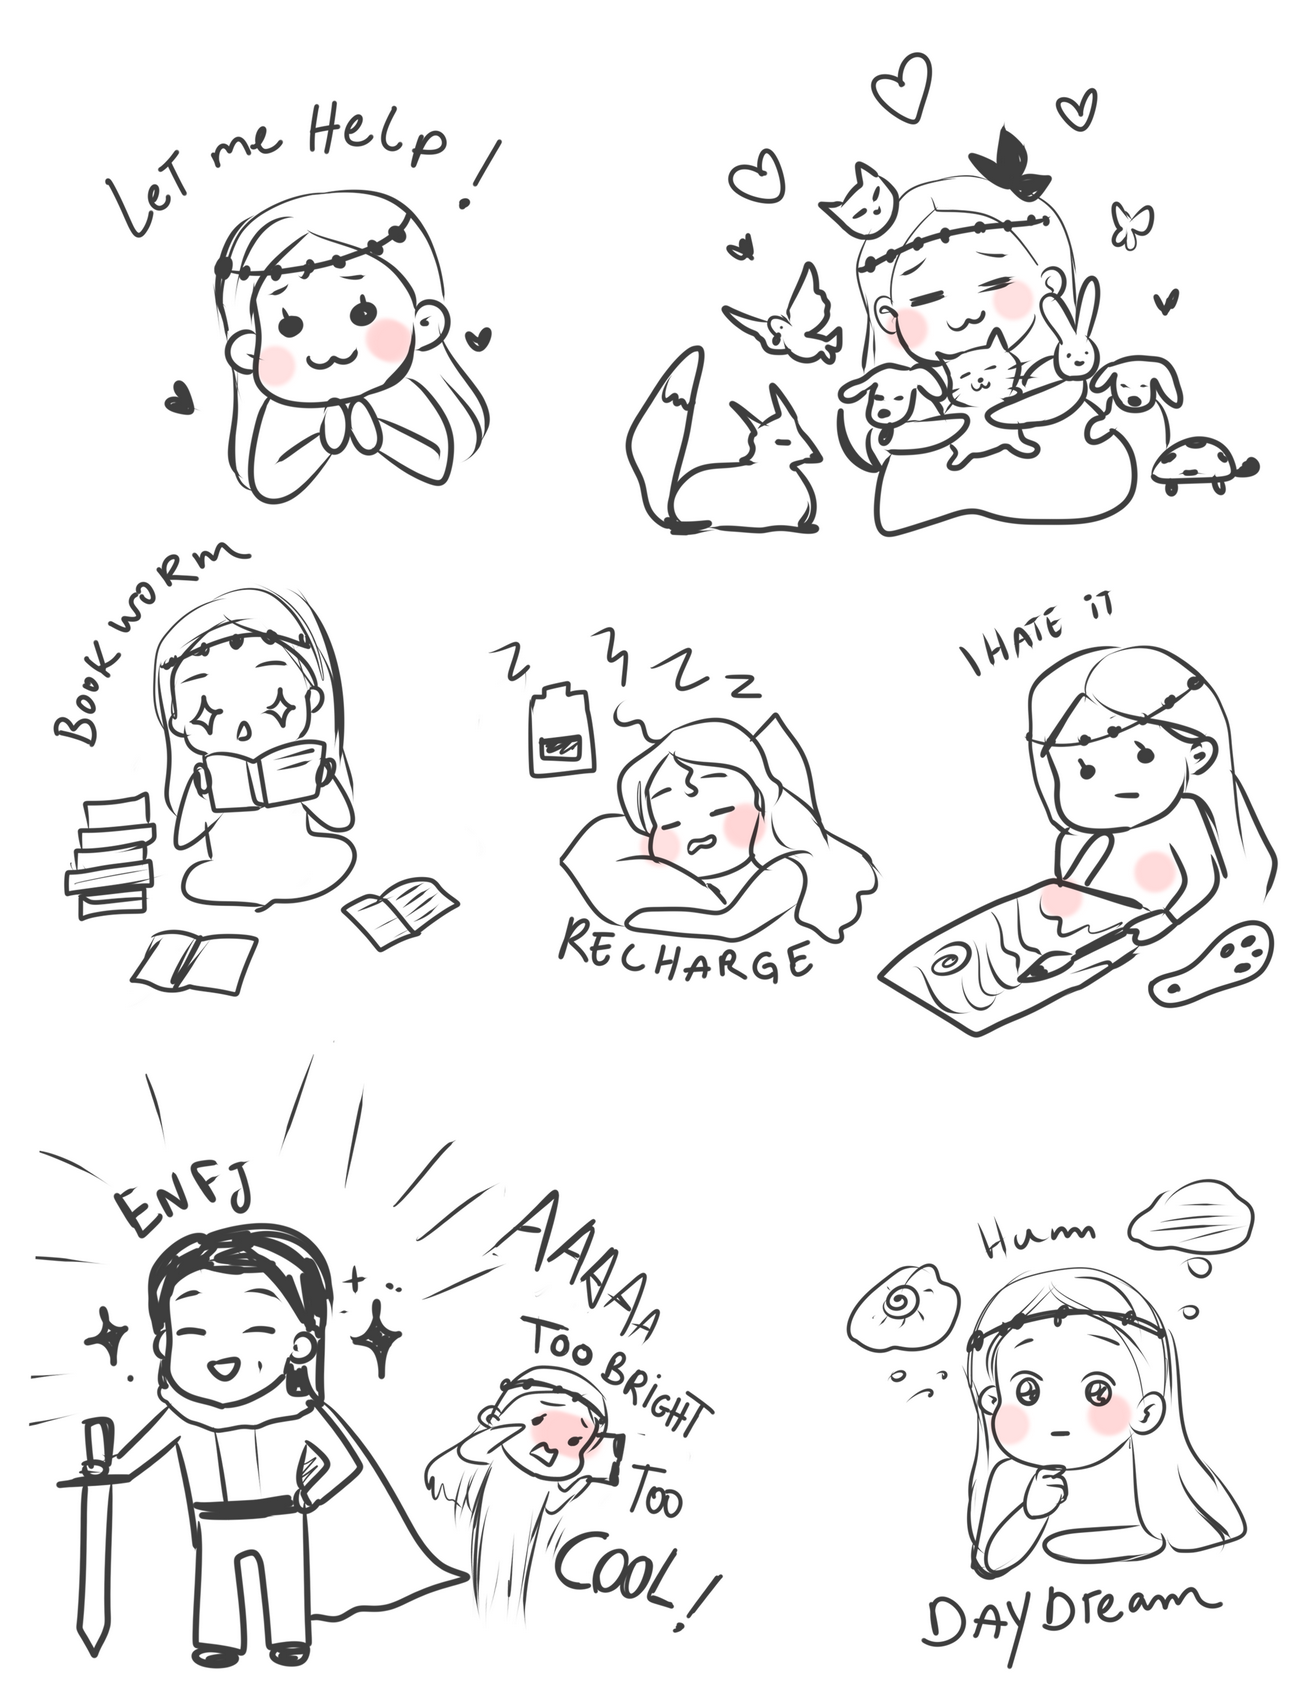 LeT me HeLp !
BooK woRm
Z Z Z Z
RECHARGE
I HATE iT
ENFJ
AAAAA
Too BRiGHT
Too
COOL!
Humm
DAYDream